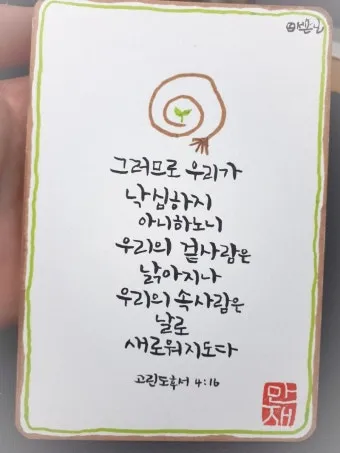 그러므로 우리가
낙심하지
아니하노니
우리의 겉사람은
낡아지나
우리의 속사람은
날로
새로워지도다
고린도후서 4:16
만
재